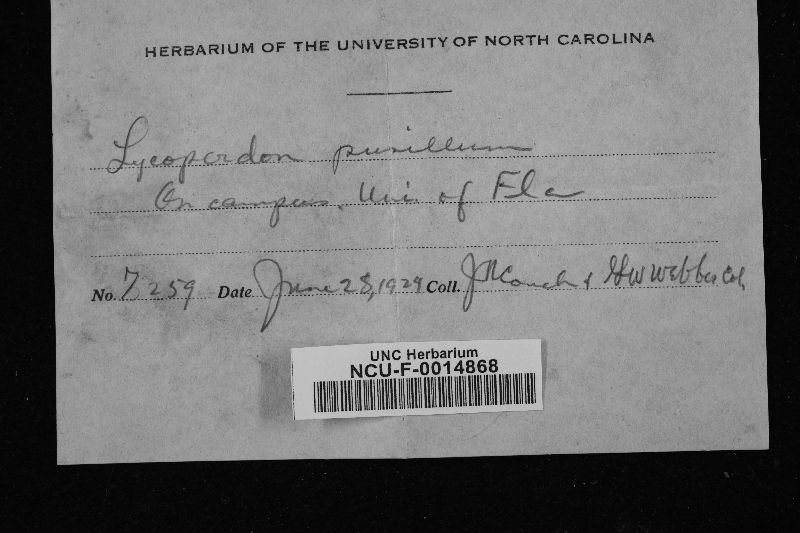 HERBARIUM OF THE UNIVERSITY OF NORTH CAROLINA
Lycoperdon pusillum
On campus, Uni. of Fla
No. 7259 Date June 28, 1929 Coll. J N Couch & GW Weber Col.
UNC Herbarium
NCU-F-0014868